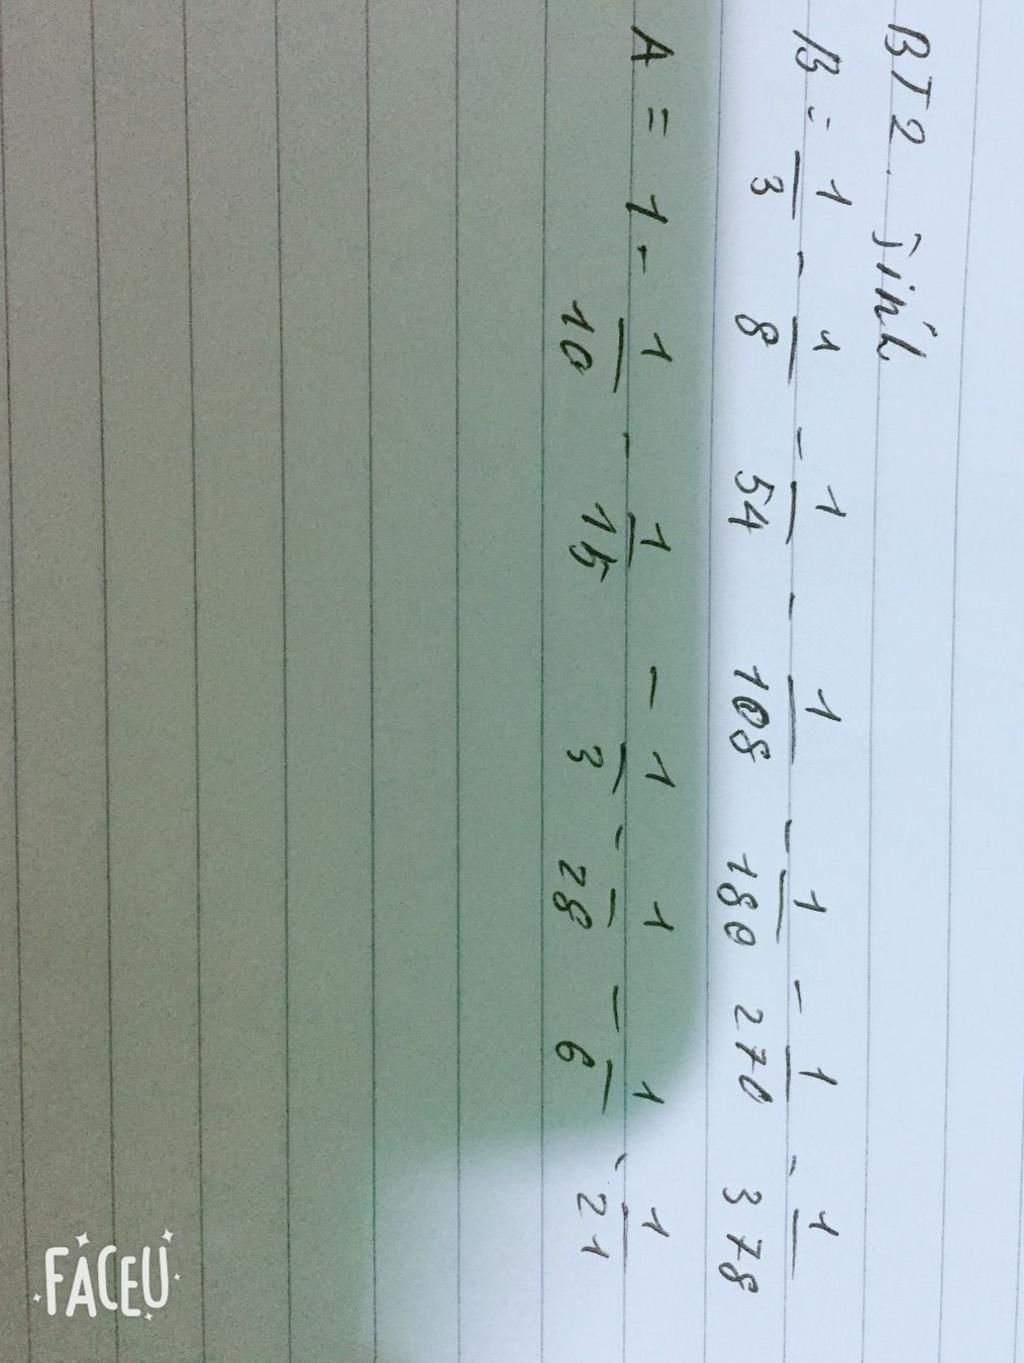 BT2. Tính
B = 1/3 - 1/8 - 1/54 - 1/108 - 1/180 - 1/270 - 1/378
A = 1 - 1/10 - 1/15 - 1/3 - 1/28 - 1/6 - 1/21
FACEU